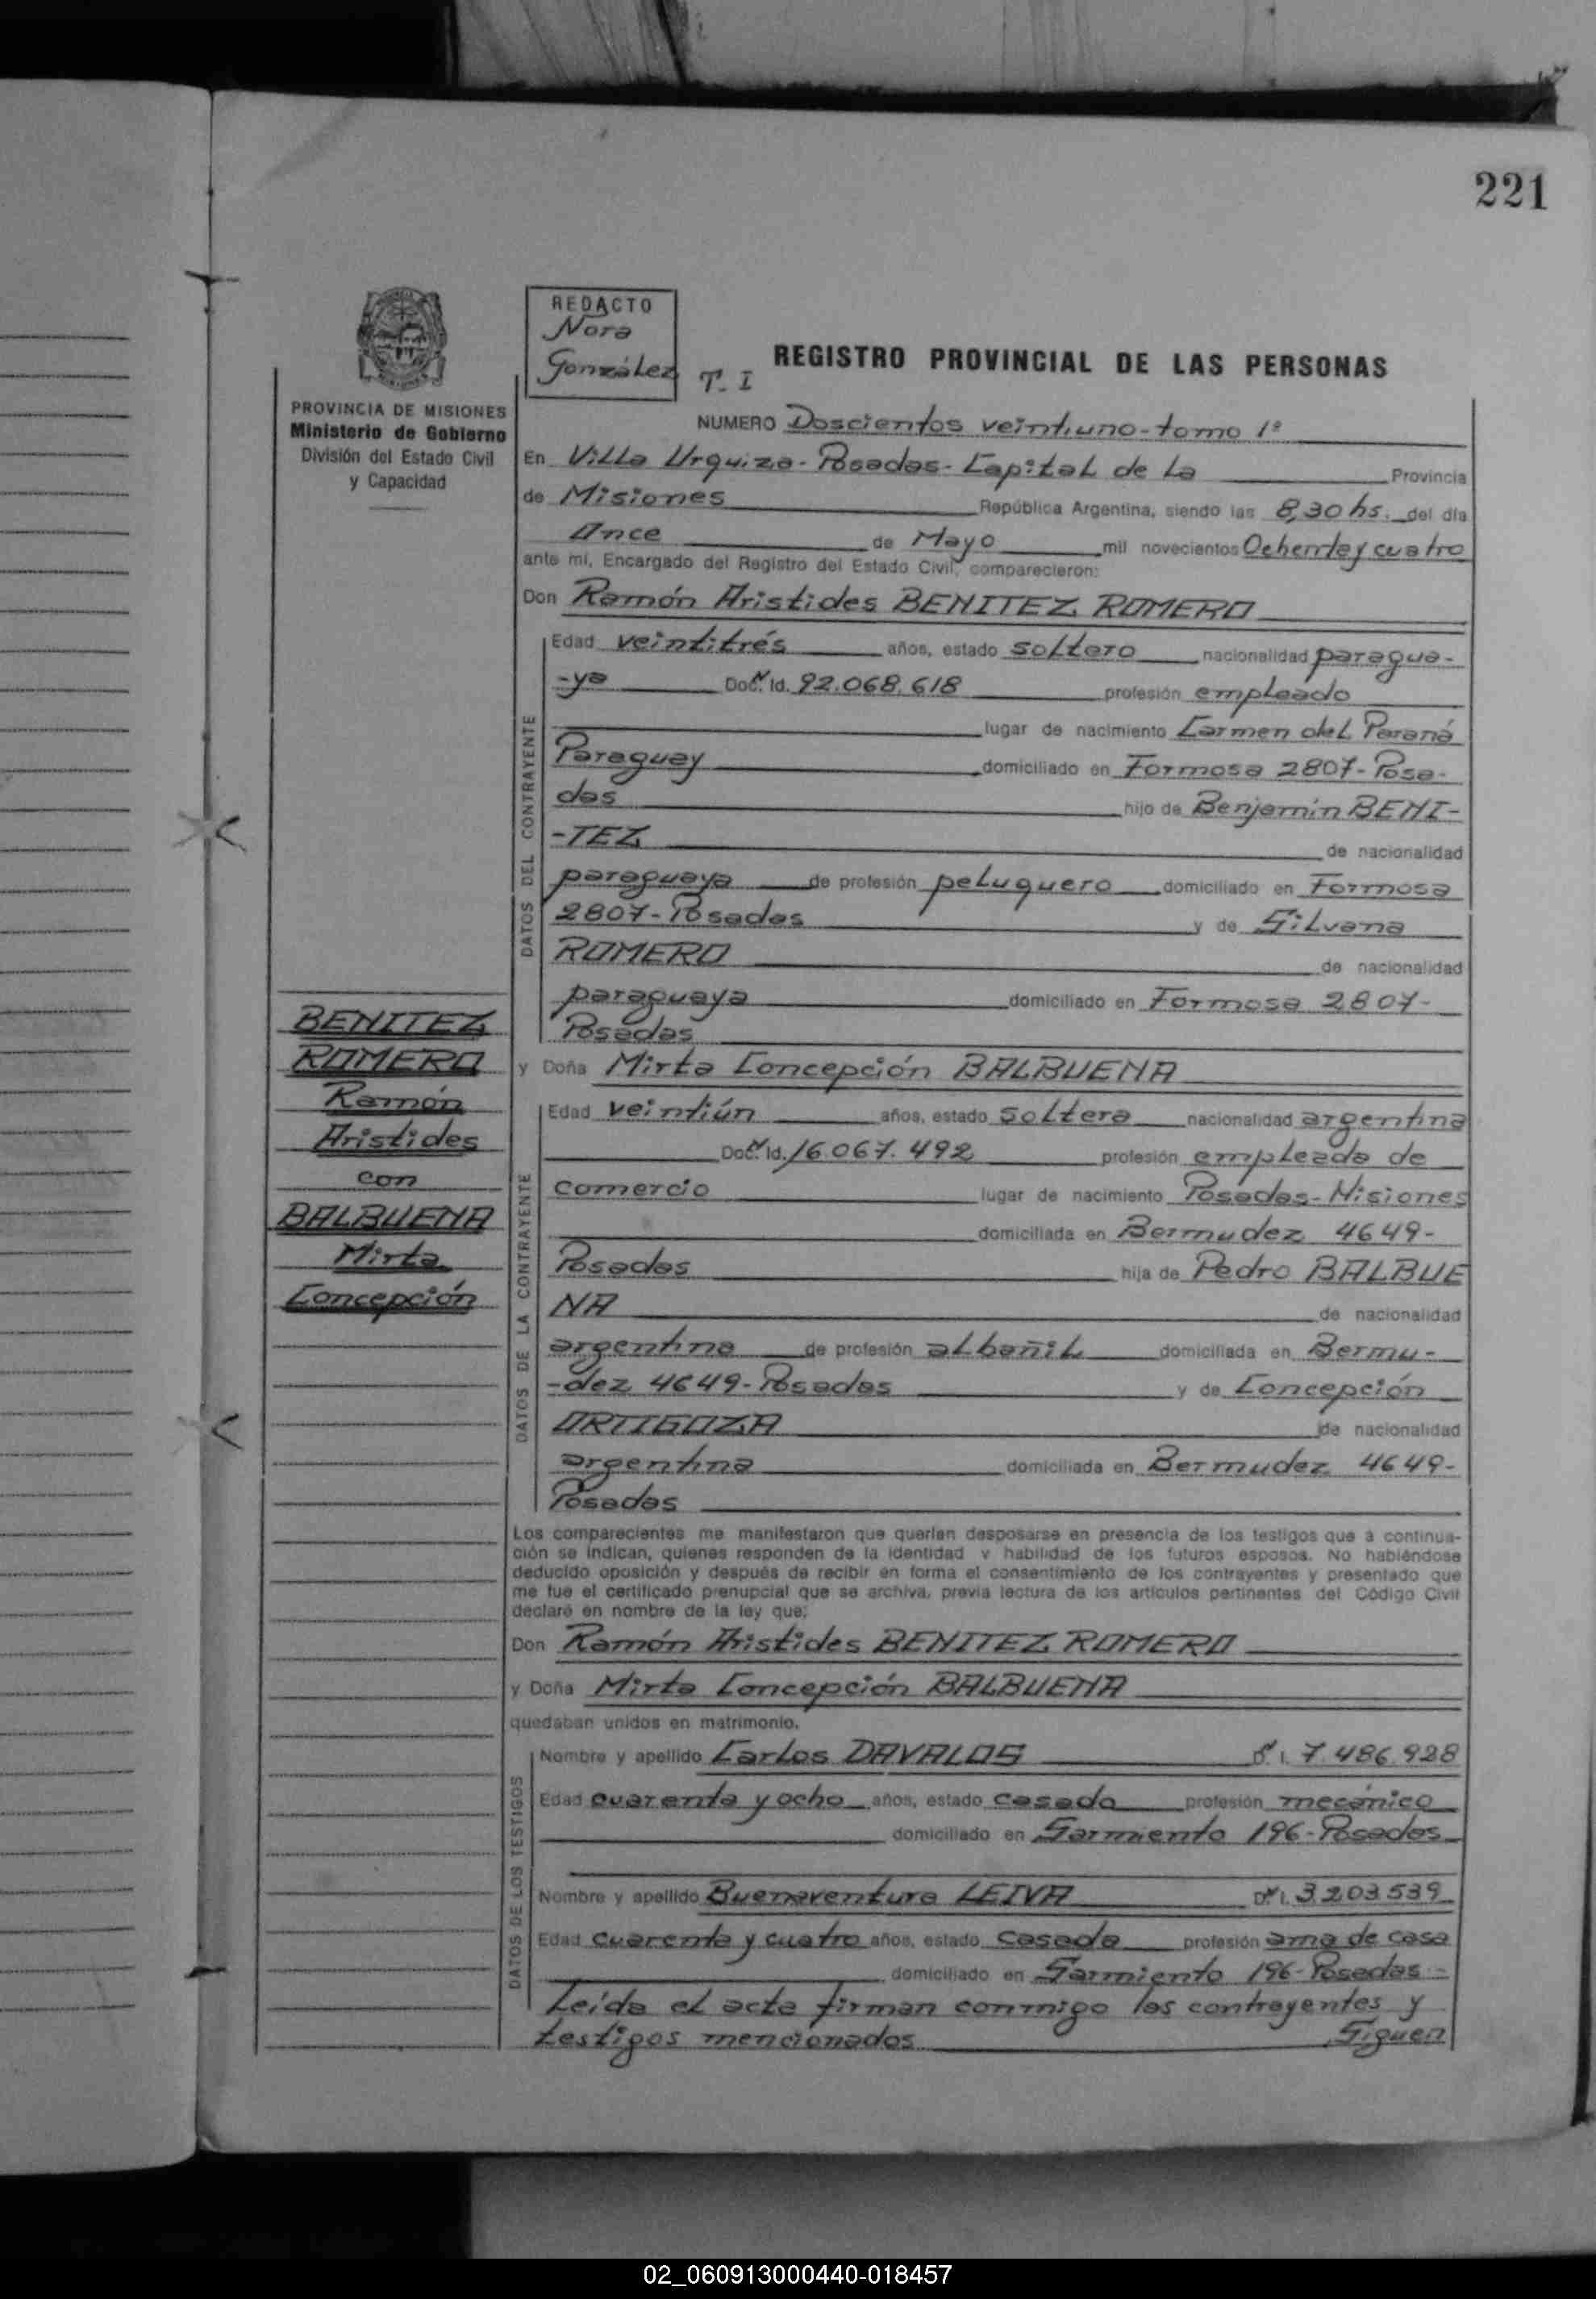 221
REDACTO
Nora
González
T. I
REGISTRO PROVINCIAL DE LAS PERSONAS
PROVINCIA DE MISIONES
Ministerio de Gobierno
División del Estado Civil
y Capacidad
NUMERO Doscientos veintiuno-tomo 1º
En Villa Urquiza-Posadas-Capital de la Provincia
de Misiones República Argentina, siendo las 8,30 hs. del día
Once de Mayo mil novecientos Ochenta y cuatro
ante mí, Encargado del Registro del Estado Civil, comparecieron:
Don Ramón Aristides BENITEZ ROMERO
DATOS DEL CONTRAYENTE
Edad veintitrés años, estado soltero nacionalidad paragua-
-ya Doc. Id. 92.068.618 profesión empleado
lugar de nacimiento Carmen del Paraná
Paraguay domiciliado en Formosa 2807-Posa-
das hijo de Benjamín BENI-
-TEZ de nacionalidad
paraguaya de profesión peluquero domiciliado en Formosa
2807-Posadas y de Silvana
ROMERO de nacionalidad
paraguaya domiciliado en Formosa 2807-
Posadas
BENITEZ
ROMERO
Ramón
Aristides
con
BALBUENA
Mirta
Concepción
y Doña Mirta Concepción BALBUENA
DATOS DE LA CONTRAYENTE
Edad veintiún años, estado soltera nacionalidad argentina
Doc. Id. 16.067.492 profesión empleada de
comercio lugar de nacimiento Posadas-Misiones
domiciliada en Bermudez 4649-
Posadas hija de Pedro BALBUE
NA de nacionalidad
argentina de profesión albañil domiciliada en Bermu-
-dez 4649-Posadas y de Concepción
ORTIGOZA de nacionalidad
argentina domiciliada en Bermudez 4649-
Posadas
Los comparecientes me manifestaron que querían desposarse en presencia de los testigos que a continua-
ción se indican, quienes responden de la identidad y habilidad de los futuros esposos. No habiéndose
deducido oposición y después de recibir en forma el consentimiento de los contrayentes y presentado que
me fue el certificado prenupcial que se archiva, previa lectura de los artículos pertinentes del Código Civil
declaré en nombre de la ley que:
Don Ramón Aristides BENITEZ ROMERO
y Doña Mirta Concepción BALBUENA
quedaban unidos en matrimonio.
DATOS DE LOS TESTIGOS
Nombre y apellido Carlos DAVALOS I. 7.486.928
Edad cuarenta y ocho años, estado casado profesión mecánico
domiciliado en Sarmiento 196-Posadas
Nombre y apellido Buenaventura LEIVA I. 3.203.539
Edad cuarenta y cuatro años, estado casada profesión ama de casa
domiciliado en Sarmiento 196-Posadas-
Leída el acta firman conmigo los contrayentes y
testigos mencionados Siguen
02_060913000440-018457